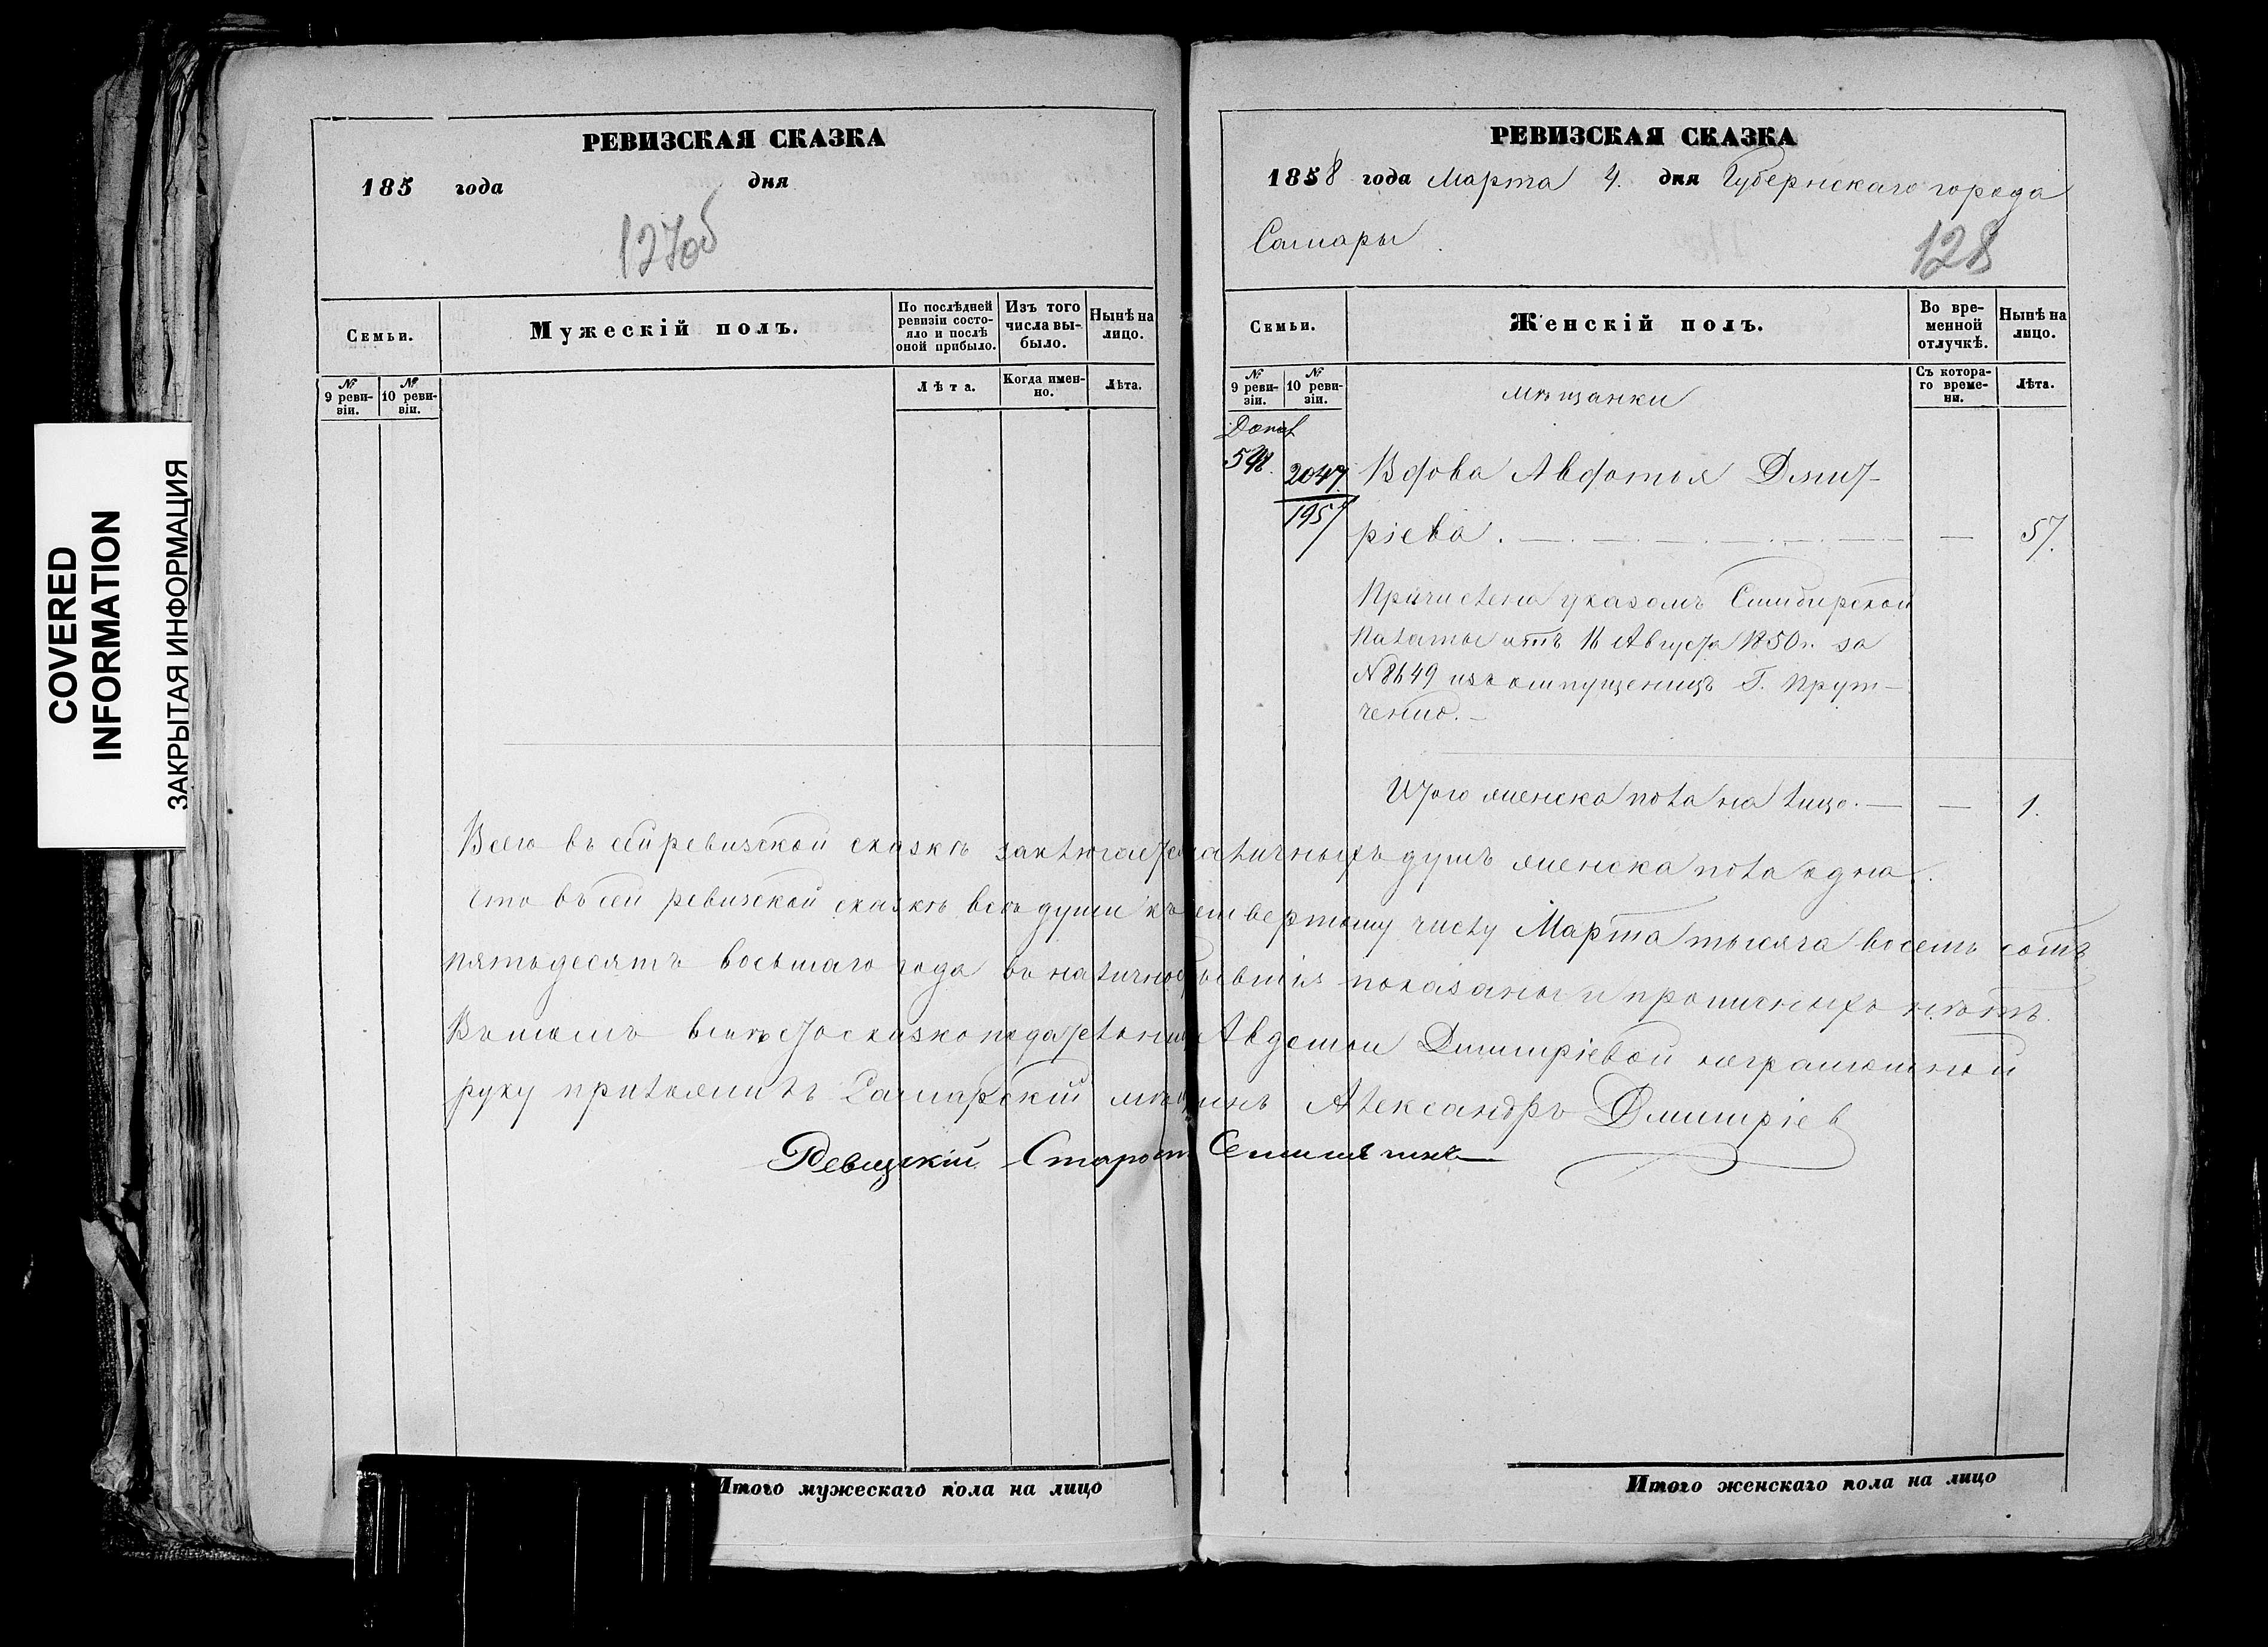 COVERED
INFORMATION
ЗАКРЫТАЯ ИНФОРМАЦИЯ
РЕВИЗСКАЯ СКАЗКА
185 года дня
127об
Семьи.
Мужескій полъ.
По послѣдней ревизіи состояло и послѣ оной прибыло.
Изъ того числа выбыло.
Нынѣ на лицо.
№ 9 ревизіи.
№ 10 ревизіи.
Лѣта.
Когда именно.
Лѣта.
Итого мужескаго пола на лицо
РЕВИЗСКАЯ СКАЗКА
1858 года Марта 4. дня Губернскаго города
Самары
128
Семьи.
Женскій полъ.
Во временной отлучкѣ.
Нынѣ на лицо.
№ 9 ревизіи.
№ 10 ревизіи.
Съ котораго времени.
Лѣта.
мѣщанки
Допол
2047 Вдова Авдотья Дмит-
1957 ріева. — — 57.
Причислена указомъ Симбирской
Палаты отъ 16 Августа 1850 г. за
№ 8649 изъ отпущеницъ Г. Прут-
ченко. —
Итого женска пола на лицо. — — 1.
Всего въ сей ревизской сказкѣ заключается наличныхъ душъ женска пола одна.
Что въ сей ревизской сказкѣ всѣ души къ четвертому числу Марта тысяча восемь сотъ
пятьдесятъ восьмаго года въ наличности бывшія показаны и прописныхъ нѣтъ.
Въ томъ вмѣсто сказкоподательницы Авдотьи Димитріевой неграмотной
руку приложилъ Самарскій мѣщанинъ Александръ Дмитріевъ
Ревизскій Староста
Итого женскаго пола на лицо